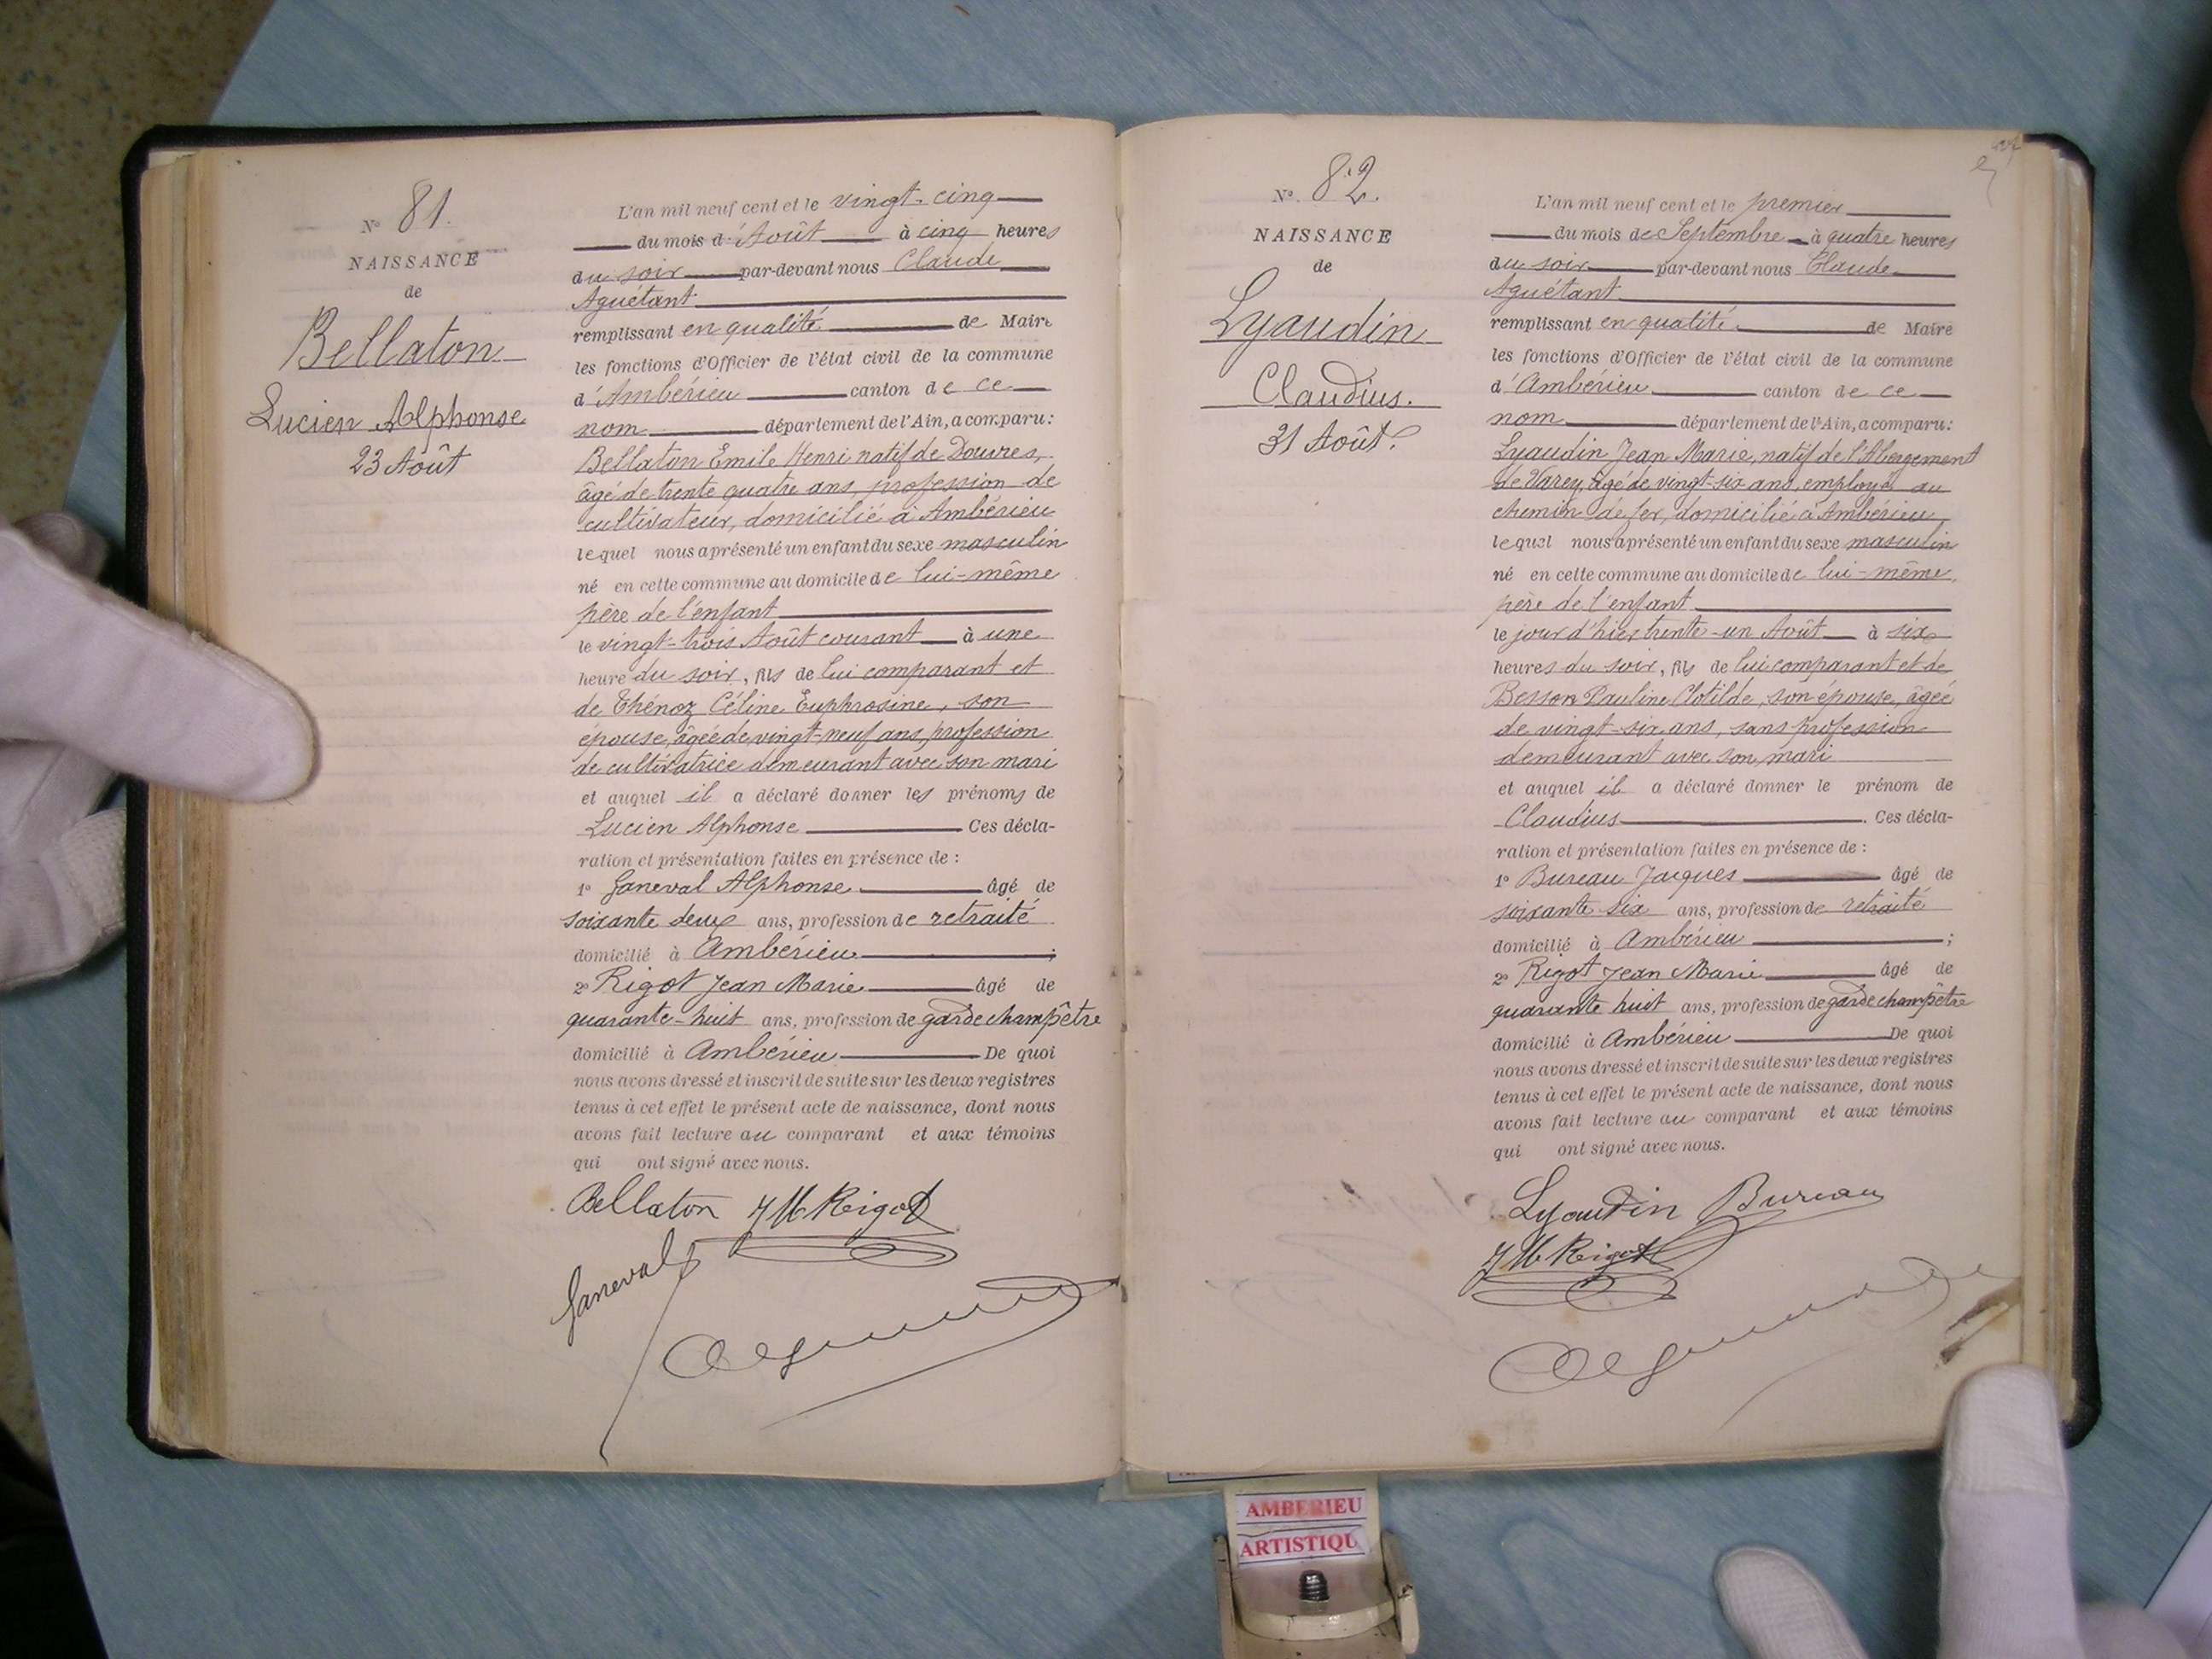 N° 81.
NAISSANCE
de
Bellaton
Lucien Alphonse
23 Août
L'an mil neuf cent et le vingt-cinq
du mois d'Août à cinq heures
du soir par-devant nous Claude
Aguétant
remplissant en qualité de Maire
les fonctions d'Officier de l'état civil de la commune
d'Ambérieu canton de ce
nom département de l'Ain, a comparu:
Bellaton Emile Henri natif de Douvres,
âgé de trente quatre ans, profession de
cultivateur, domicilié à Ambérieu
lequel nous a présenté un enfant du sexe masculin
né en cette commune au domicile de lui-même
père de l'enfant
le vingt-trois Août courant à une
heure du soir, fils de lui comparant et
de Thénoz Céline Euphrosine, son
épouse, âgée de vingt-neuf ans, profession
de cultivatrice demeurant avec son mari
et auquel il a déclaré donner les prénoms de
Lucien Alphonse Ces décla-
ration et présentation faites en présence de :
1° Ganeval Alphonse âgé de
soixante deux ans, profession de retraité
domicilié à Ambérieu ;
2° Rigot Jean Marie âgé de
quarante-huit ans, profession de garde champêtre
domicilié à Ambérieu De quoi
nous avons dressé et inscrit de suite sur les deux registres
tenus à cet effet le présent acte de naissance, dont nous
avons fait lecture au comparant et aux témoins
qui ont signé avec nous.
Bellaton JM Rigot
Ganeval
N° 82.
NAISSANCE
de
Lyaudin
Claudius.
31 Août.
L'an mil neuf cent et le premier
du mois de Septembre à quatre heures
du soir par-devant nous Claude
Aguétant
remplissant en qualité de Maire
les fonctions d'Officier de l'état civil de la commune
d'Ambérieu canton de ce
nom département de l'Ain, a comparu:
Lyaudin Jean Marie, natif de l'Abergement
de Varey, âgé de vingt-six ans, employé au
chemin de fer, domicilié à Ambérieu,
lequel nous a présenté un enfant du sexe masculin
né en cette commune au domicile de lui-même,
père de l'enfant
le jour d'hier trente-un Août à six
heures du soir, fils de lui comparant et de
Besson Pauline Clotilde, son épouse, âgée
de vingt-six ans, sans profession
demeurant avec son mari
et auquel il a déclaré donner le prénom de
Claudius . Ces décla-
ration et présentation faites en présence de :
1° Bureau Jacques âgé de
soixante six ans, profession de retraité
domicilié à Ambérieu ;
2° Rigot Jean Marie âgé de
quarante huit ans, profession de garde champêtre
domicilié à Ambérieu De quoi
nous avons dressé et inscrit de suite sur les deux registres
tenus à cet effet le présent acte de naissance, dont nous
avons fait lecture au comparant et aux témoins
qui ont signé avec nous.
Lyaudin Bureau
JM Rigot
AMBERIEU
ARTISTIQU